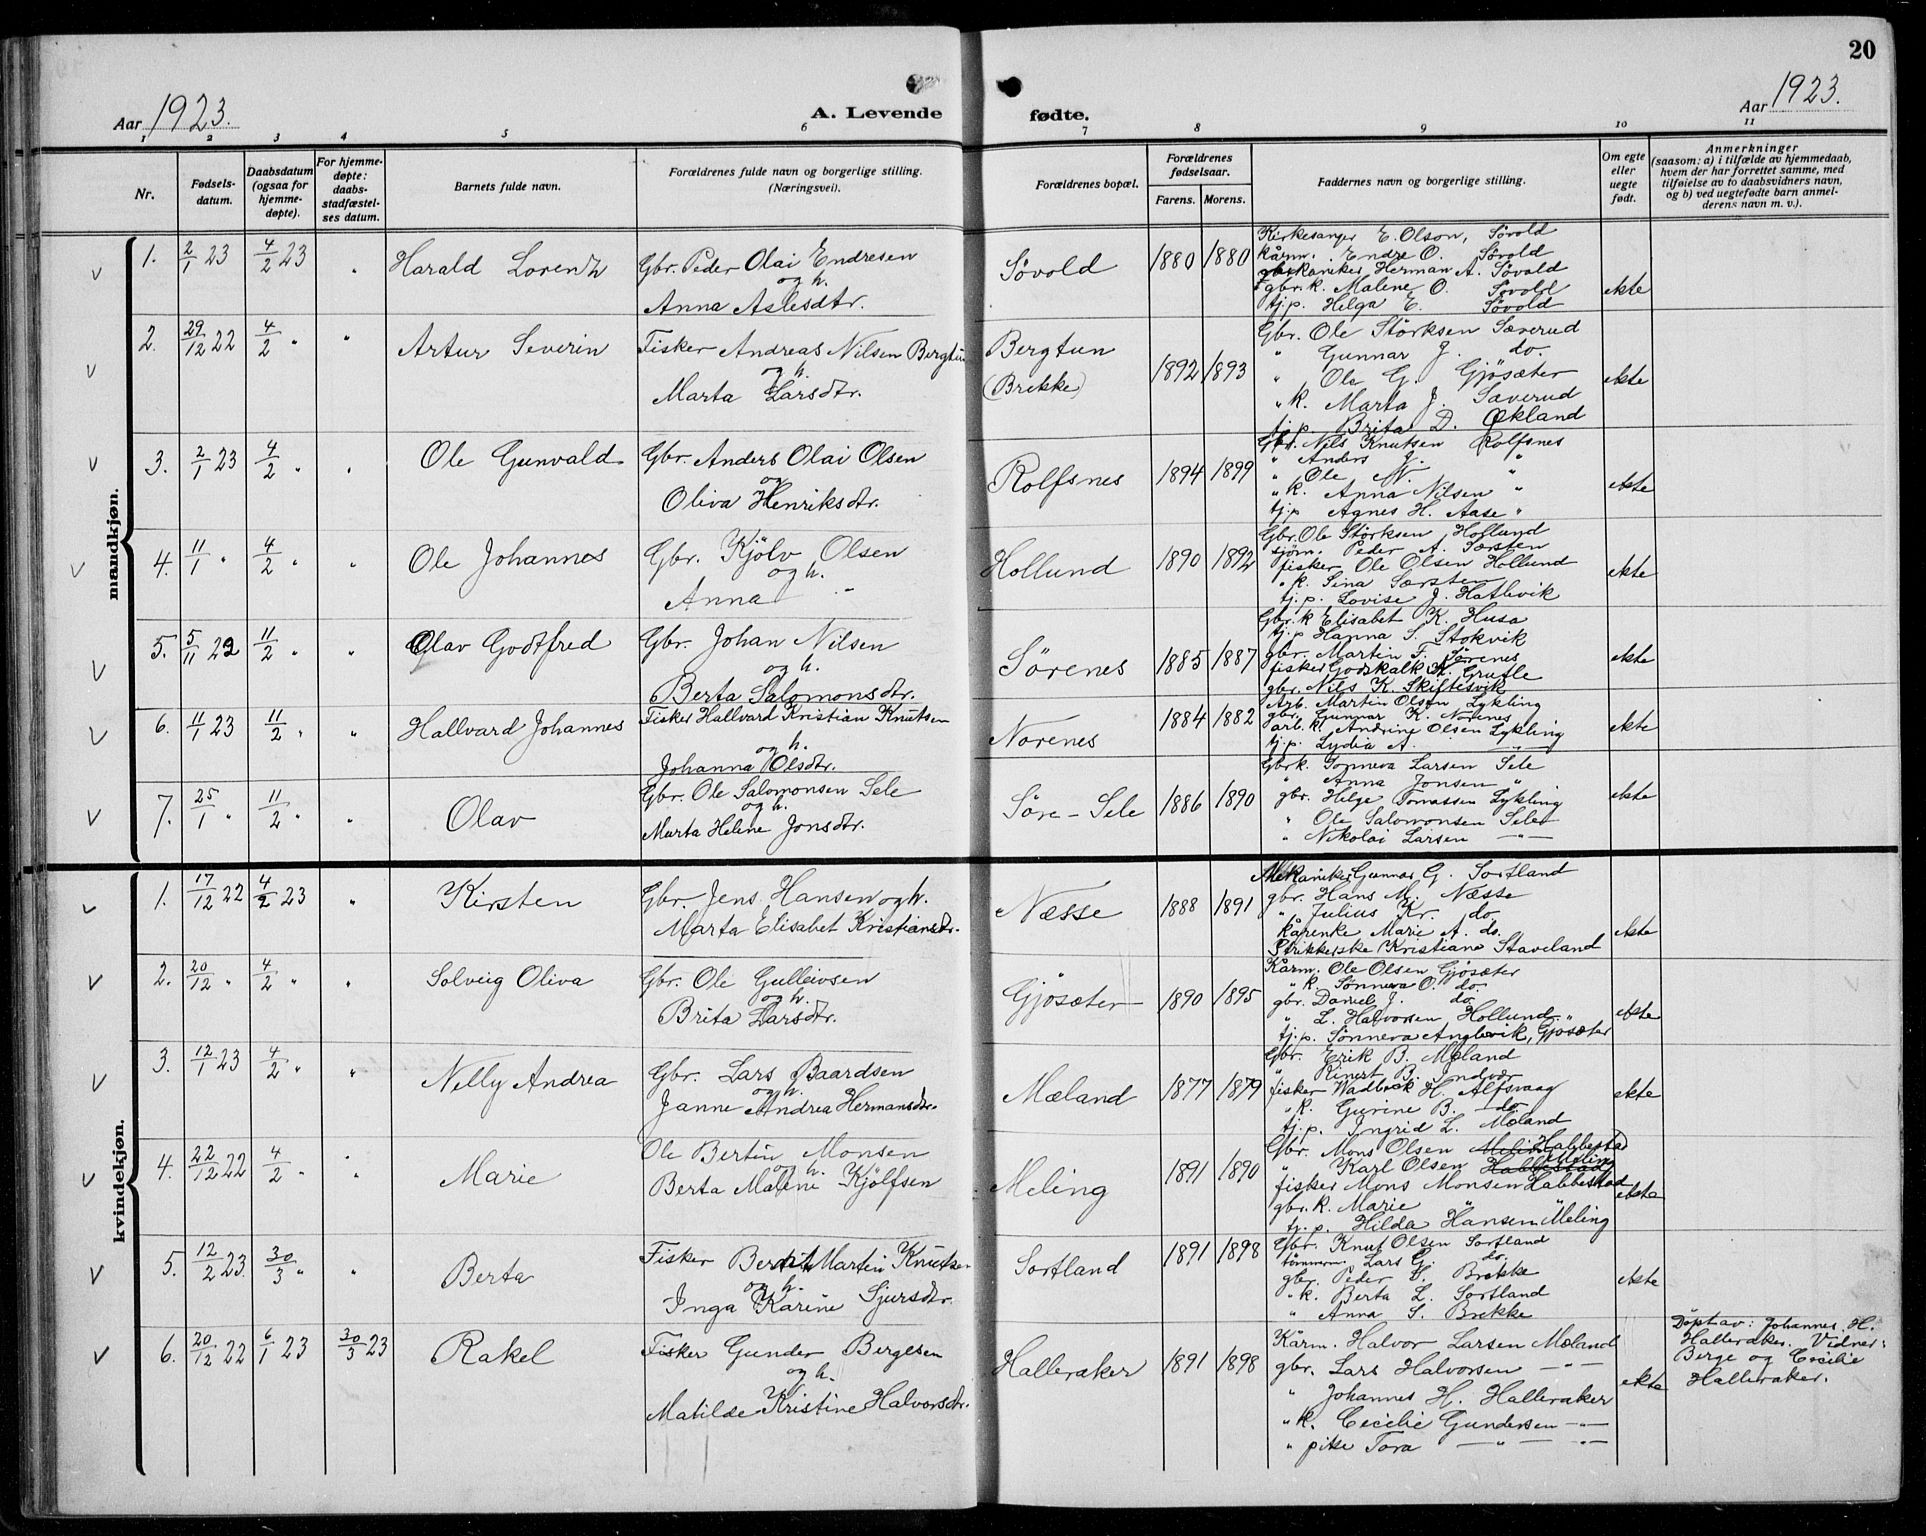 20
Aar 1923.
A. Levende
fødte.
Aar 1923.
1 2 3 4 5 6 7 8 9 10 11
Nr.
Fødsels-
datum.
Daabsdatum
(ogsaa for
hjemme-
døpte).
For hjemme-
døpte:
daabs-
stadfæstel-
ses datum.
Barnets fulde navn.
Forældrenes fulde navn og borgerlige stilling.
(Næringsvei).
Forældrenes bopæl.
Forældrenes
fødselsaar.
Farens. Morens.
Faddernes navn og borgerlige stilling.
Om egte
eller
uegte
født.
Anmerkninger
(saasom: a) i tilfælde av hjemmedaab,
hvem der har forrettet samme, med
tilføielse av to daabsvidners navn,
og b) ved uegtefødte barn anmel-
derens navn m. v.).
mandkjøn.
1. 2/1 23 4/2 23 " Harald Lorentz
Gbr. Peder Olai Endresen
og h.
Anna Aslesdtr.
Søvold 1880 1880
Kirkesanger E. Olson, Søvold
kårm. Endre O. Søvold
mekaniker Herman A. Søvold
gbr.k. Malene O. Søvold
tj.p. Helga E. Søvold
ekte
2. 29/12 22 4/2 " " Artur Severin
Fisker Andreas Nilsen Bergtun
og h.
Marta Larsdtr.
Bergtun
(Brekke)
1892 1893
Gbr. Ole Størksen Sæverud
" Gunnar J. do.
" Ole G. Gjøsæter
" k. Marta J. Sæverud
tj.p. Brita D. Økland
ekte
3. 2/1 23 4/2 " " Ole Gunvald
Gbr. Anders Olai Olsen
og
Oliva Henriksdtr.
Rolfsnes 1894 1899
Gbr. Nils Knutsen Rolfsnes
" Anders J. "
" Ole N. "
" k. Anna Nilsen "
tj.p. Agnes H. Aase "
ekte
4. 11/1 " 4/2 " " Ole Johannes
Gbr. Kjölv Olsen
og h.
Anna "
Hollund 1890 1892
Gbr. Ole Størksen Hollund
sjøm. Peder A. Særsten
fisker Ole Olsen Hollund
" k. Sina Særsten
tj.p. Lovise J. Hatlevik
ekte
5. 5/11 22 11/2 " " Olav Godtfred
Gbr. Johan Nilsen
og h.
Berta Salomonsdtr.
Sørenes 1885 1887
Gbr.k Elisabet K. Husa
tj.p Hanna S. Stokvik
gbr. Martin F. Sørenes
fisker Godskalk A. Grutle
gbr. Nils K. Skiftesvik
ekte
6. 11/1 23 11/2 " " Hallvard Johannes
Fisker Hallvard Kristian Knutsen
og h.
Johanna Olsdtr.
Norenes 1884 1882
Arb. Martin Olsen Lykling
gbr. Gunnar K. Norenes
arb. k. Andrine Olsen Lykling
tj.p. Lydia A. — " —
ekte
7. 25/1 " 11/2 " " Olav
Gbr. Ole Salomonsen Sele
og h.
Marta Helene Jonsdtr.
Søre - Sele 1886 1890
Gbrk. Sønneva Larsen Sele
" Anna Jonsen "
gbr. Helge Tomassen Lykling
" Ole Salomonsen Sele
" Nikolai Larsen — " —
ekte
kvindekjøn.
1. 17/12 22 4/2 23 " Kirsten
Gbr. Jens Hansen og h.
Marta Elisabet Kristiansdtr.
Næsse 1888 1891
Mekaniker Gunnar G. Sortland
gbr. Hans M. Næsse
" Julius Kr. do
kårenke Marie A. do.
Strikkerske Kristiane Staveland
ekte
2. 20/12 " 4/2 " " Solveig Oliva
Gbr. Ole Gulleivsen
og h.
Brita Larsdtr.
Gjøsæter 1890 1895
Kårm. Ole Olsen Gjøsæter
" k. Sønneva O. do.
gbr. Daniel J. do.
" L. Halvorsen Hollund "
tj.p. Sønneva Anglevik, Gjøsæter
ekte
3. 12/1 23 4/2 " " Nelly Andrea
Gbr. Lars Baardsen
og h.
Janne Andrea Hermansdtr.
Mæland 1877 1879
Gbr. Erik B. Mæland
" Rinert B. Indvær
fisker H. Alfsvaag
" k. Gurine B. do
tj.p. Ingrid L. Mæland
ekte
4. 22/12 22 4/2 " " Marie
Ole Bertin Monsen
og h.
Berta Malene Kjölfsen
Meling 1891 1890
Gbr. Mons Olsen Meling Habbestad
" Karl Olsen Habbestad Meling
fisker Mons Monsen Habbestad
gbr. k. Marie " "
tj. p. Hilda Hansen Meling
ekte
5. 12/2 23 30/3 " " Berta
Fisker Bertil Martin Knutsen
og h.
Inga Karine Sjursdtr.
Sortland 1891 1898
Gbr. Knut Olsen Sortland
tømmerm. Lars G. do.
gbr. Peder S. Brekke
" k. Berta L. Sortland
" Anna S. Brekke
ekte
6. 20/12 22 6/1 23 30/3 23 Rakel
Fisker Gunder Bergesen
og h.
Matilde Kristine Halvorsdtr.
Halleraker 1891 1898
Kårm. Halvor Larsen Mæland
gbr. Lars Halvorsen — " —
" Johannes H. Halleraker
" k. Cecilie Gundersen — " —
" pike Tora — " — " —
ekte
Døpt av: Johannes H.
Halleraker. Vidner:
Berge og Cecilie
Halleraker.